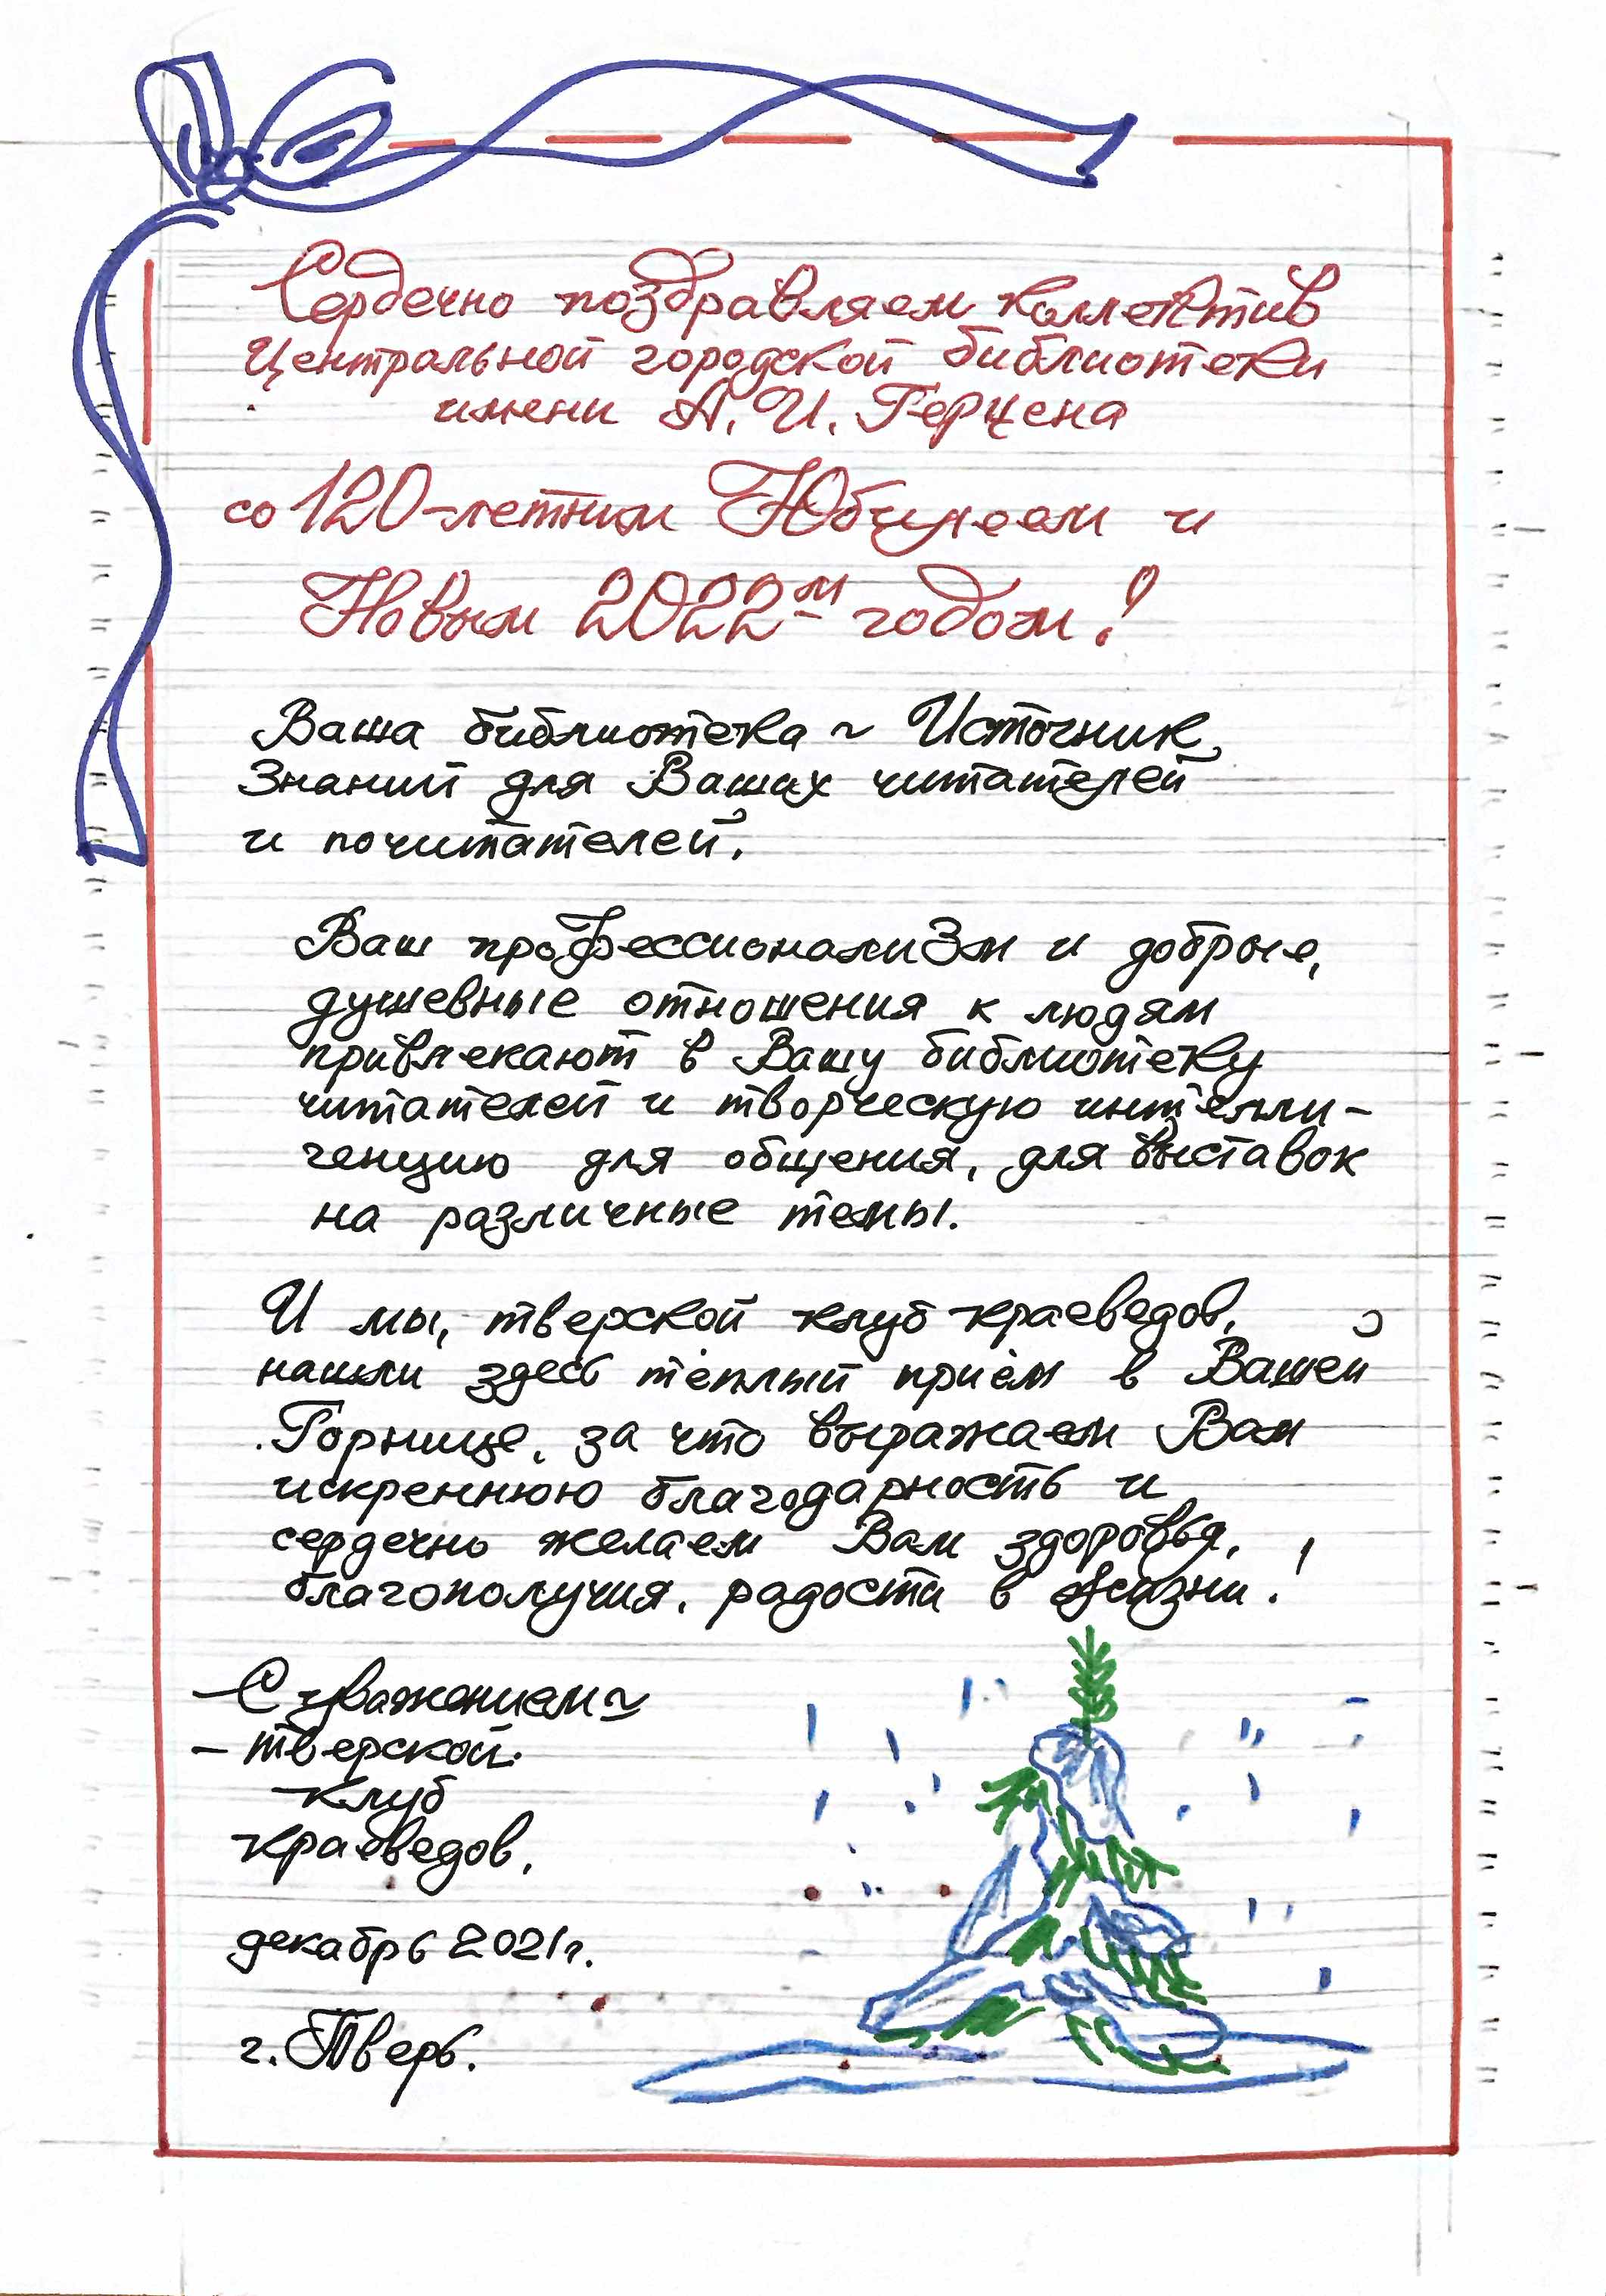 Сердечно поздравляем коллектив
Центральной городской библиотеки
имени А. И. Герцена
со 120-летним Юбилеем и
Новым 2022-м годом!
Ваша библиотека ~ Источник
Знаний для Ваших читателей
и почитателей.
Ваш профессионализм и добрые,
душевные отношения к людям
привлекают в Вашу библиотеку
читателей и творческую интелли-
генцию для общения, для выставок
на различные темы.
И мы, тверской клуб краеведов,
нашли здесь тёплый приём в Вашей
Горнице, за что выражаем Вам
искреннюю благодарность и
сердечно желаем Вам здоровья,
благополучия, радости в жизни!
С уважением ~
– тверской
клуб
краеведов,
декабрь 2021г.
г. Тверь.